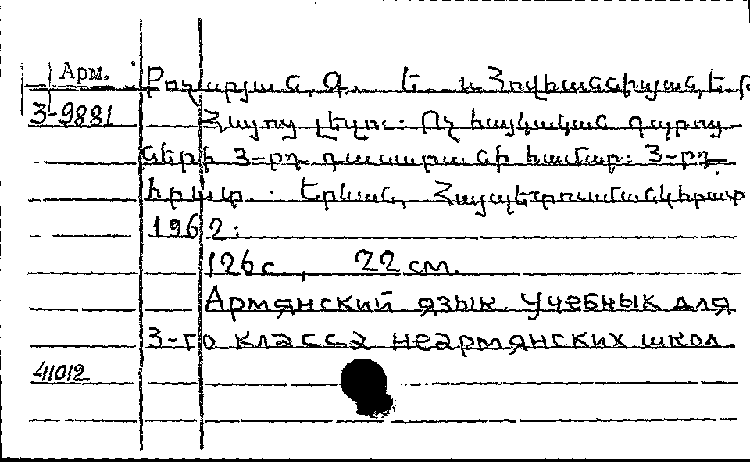 Арм. Բոլարյան, Գ. Ե. և Հովհաննիսյան, Ե.
3-9881 Հայոց լեզու: Ոչ հայկական դպրոց-
ների 3-րդ դասարանի համար: 3-րդ
հրատ. Երևան, Հայպետուսմանկհրատ
1962:
126 с., 22 см.
Армянский язык. Учебнык для
3-го класса неармянских школ.
41012